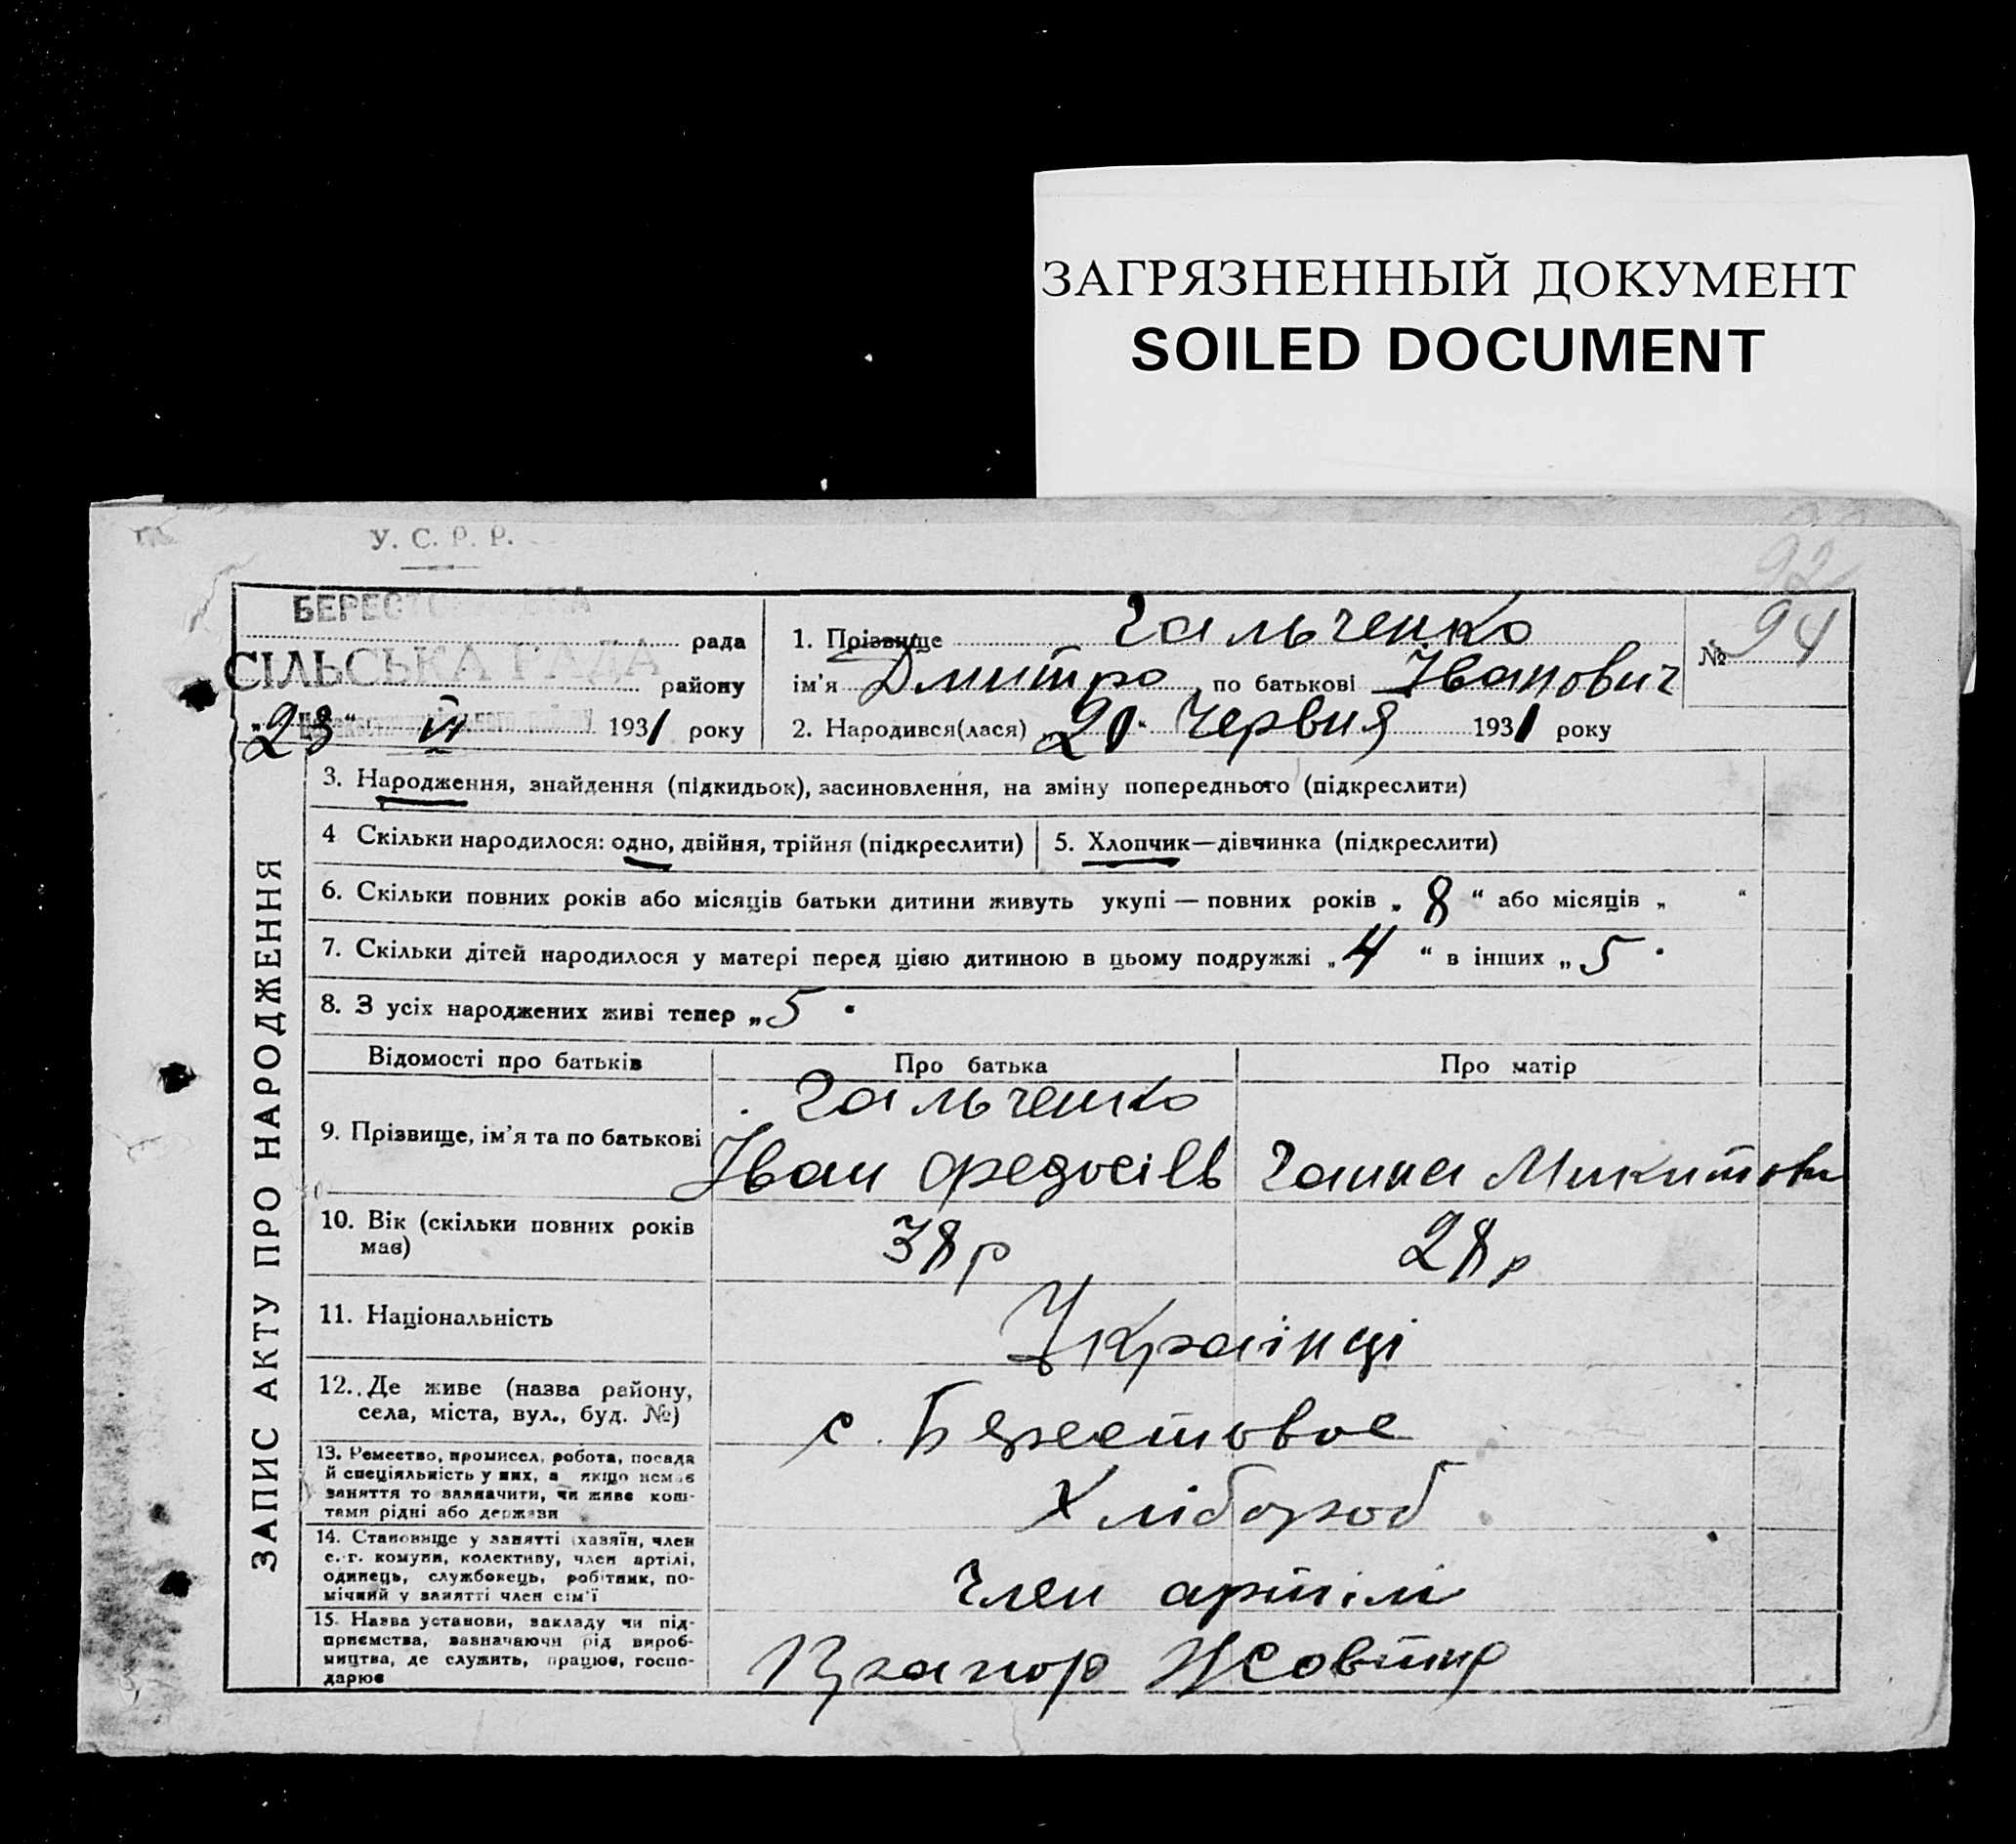 ЗАГРЯЗНЕННЫЙ ДОКУМЕНТ
SOILED DOCUMENT
У. С. Р. Р.
92
ЗАПИС АКТУ ПРО НАРОДЖЕННЯ
рада
СІЛЬСЬКА РАДА
району
„23“ VI 1931 року
1. Прізвище Гальченко
№ 94
ім'я Дмитро, по батькові Іванович
2. Народився(лася) 20 червня 1931 року
3. Народження, знайдення (підкидьок), засиновлення, на зміну попереднього (підкреслити)
4 Скільки народилося: одно, двійня, трійня (підкреслити)
5. Хлопчик—дівчинка (підкреслити)
6. Скільки повних років або місяців батьки дитини живуть укупі — повних років „ 8 “ або місяців „ “
7. Скільки дітей народилося у матері перед цією дитиною в цьому подружжі „ 4 “ в інших „ 5 “
8. З усіх народжених живі тепер „ 5 “
Відомості про батьків
Про батька
Про матір
9. Прізвище, ім'я та по батькові
Гальченко
Іван Федосіїв
Ганна Микитовн
10. Вік (скільки повних років
має)
38 р
28 р
11. Національність
Українці
12. Де живе (назва району,
села, міста, вул., буд. №)
с. Берестовое
13. Ремество, промисел, робота, посада
й спеціяльність у них, а якщо немає
заняття то зазначити, чи живе кош-
тами рідні або держави
Хлібороб
14. Становище у занятті (хазяїн, член
с.-г. комуни, колективу, член артілі,
одинець, службовець, робітник, по-
мічний у занятті член сім'ї
Член артілі
15. Назва установи, закладу чи під-
приємства, зазначаючи рід вироб-
ництва, де служить, працює, госпо-
дарює
Прапор Жовтня